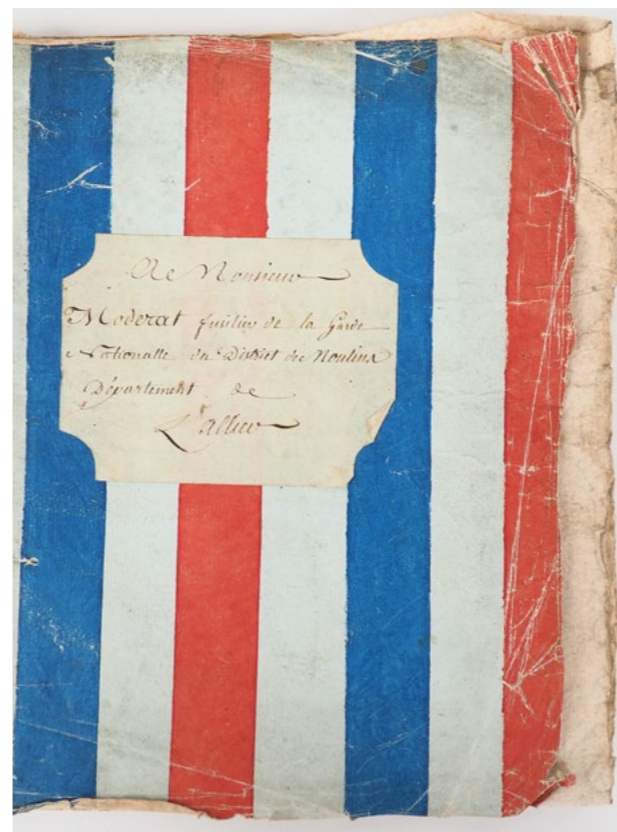 A Monsieur
Moderat fusilier de la Garde
Nationalle du District de Moulins
Département de
L'allier